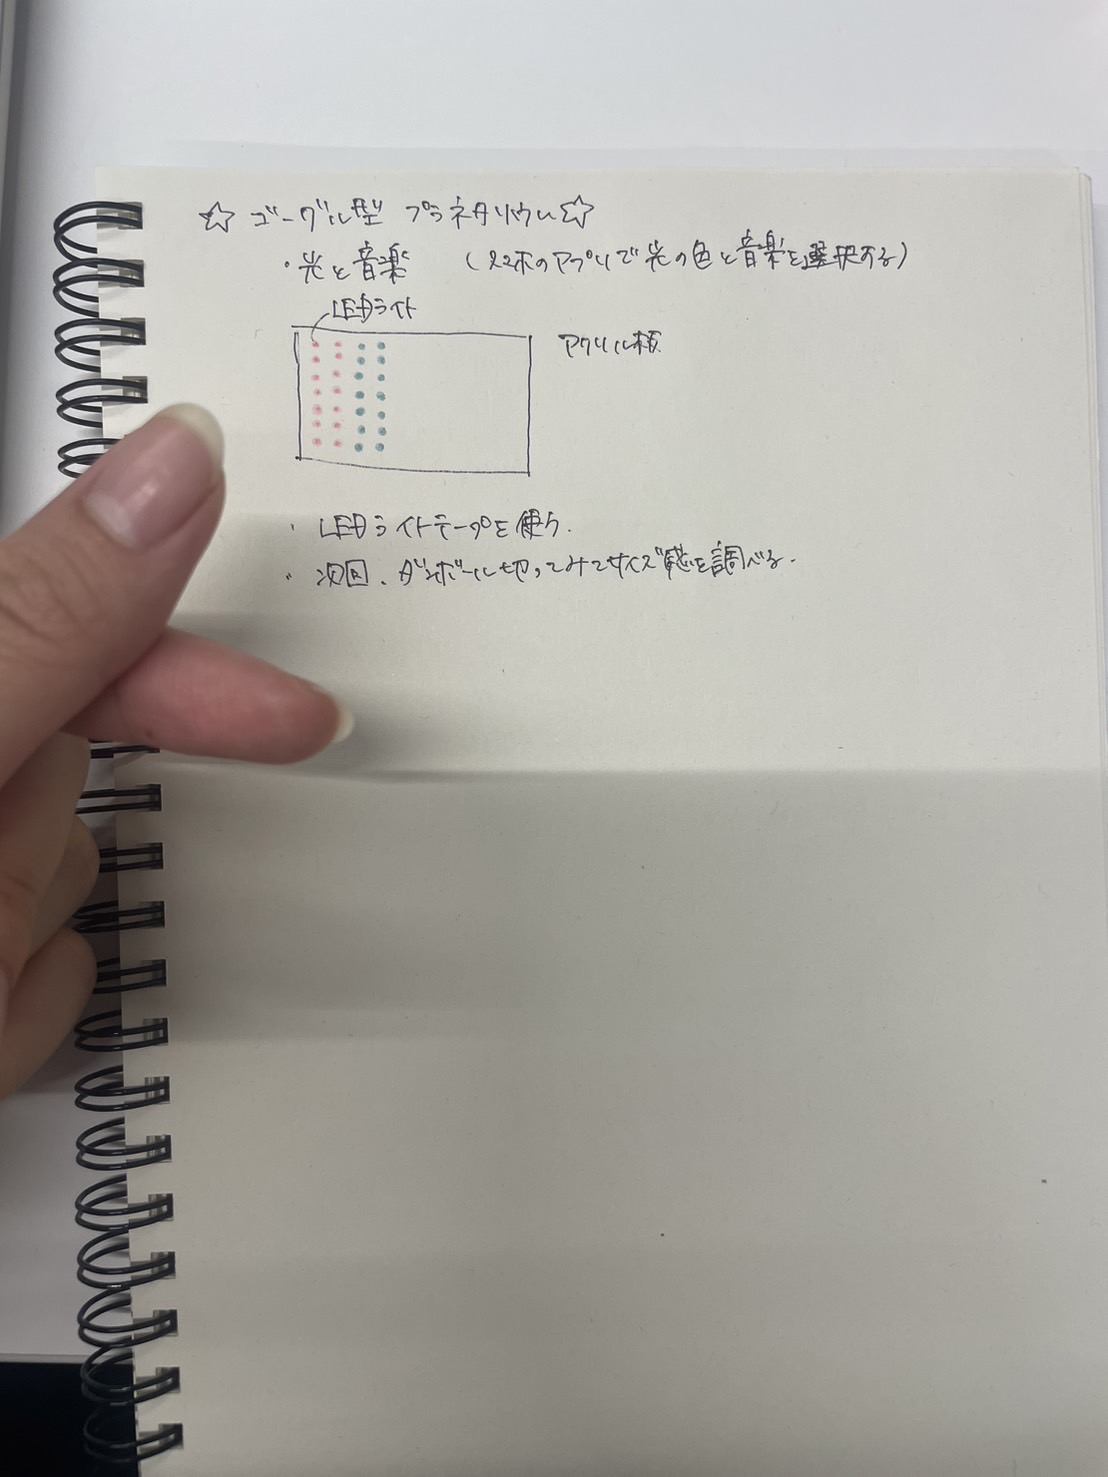 ☆ ゴーグル型 プラネタリウム☆
・光と音楽 （スマホのアプリで光の色と音楽を選択する）
LEDライト
アクリル板
・LEDライトテープを使う.
・次回、ダンボール切ってみてサイズ感を調べる.